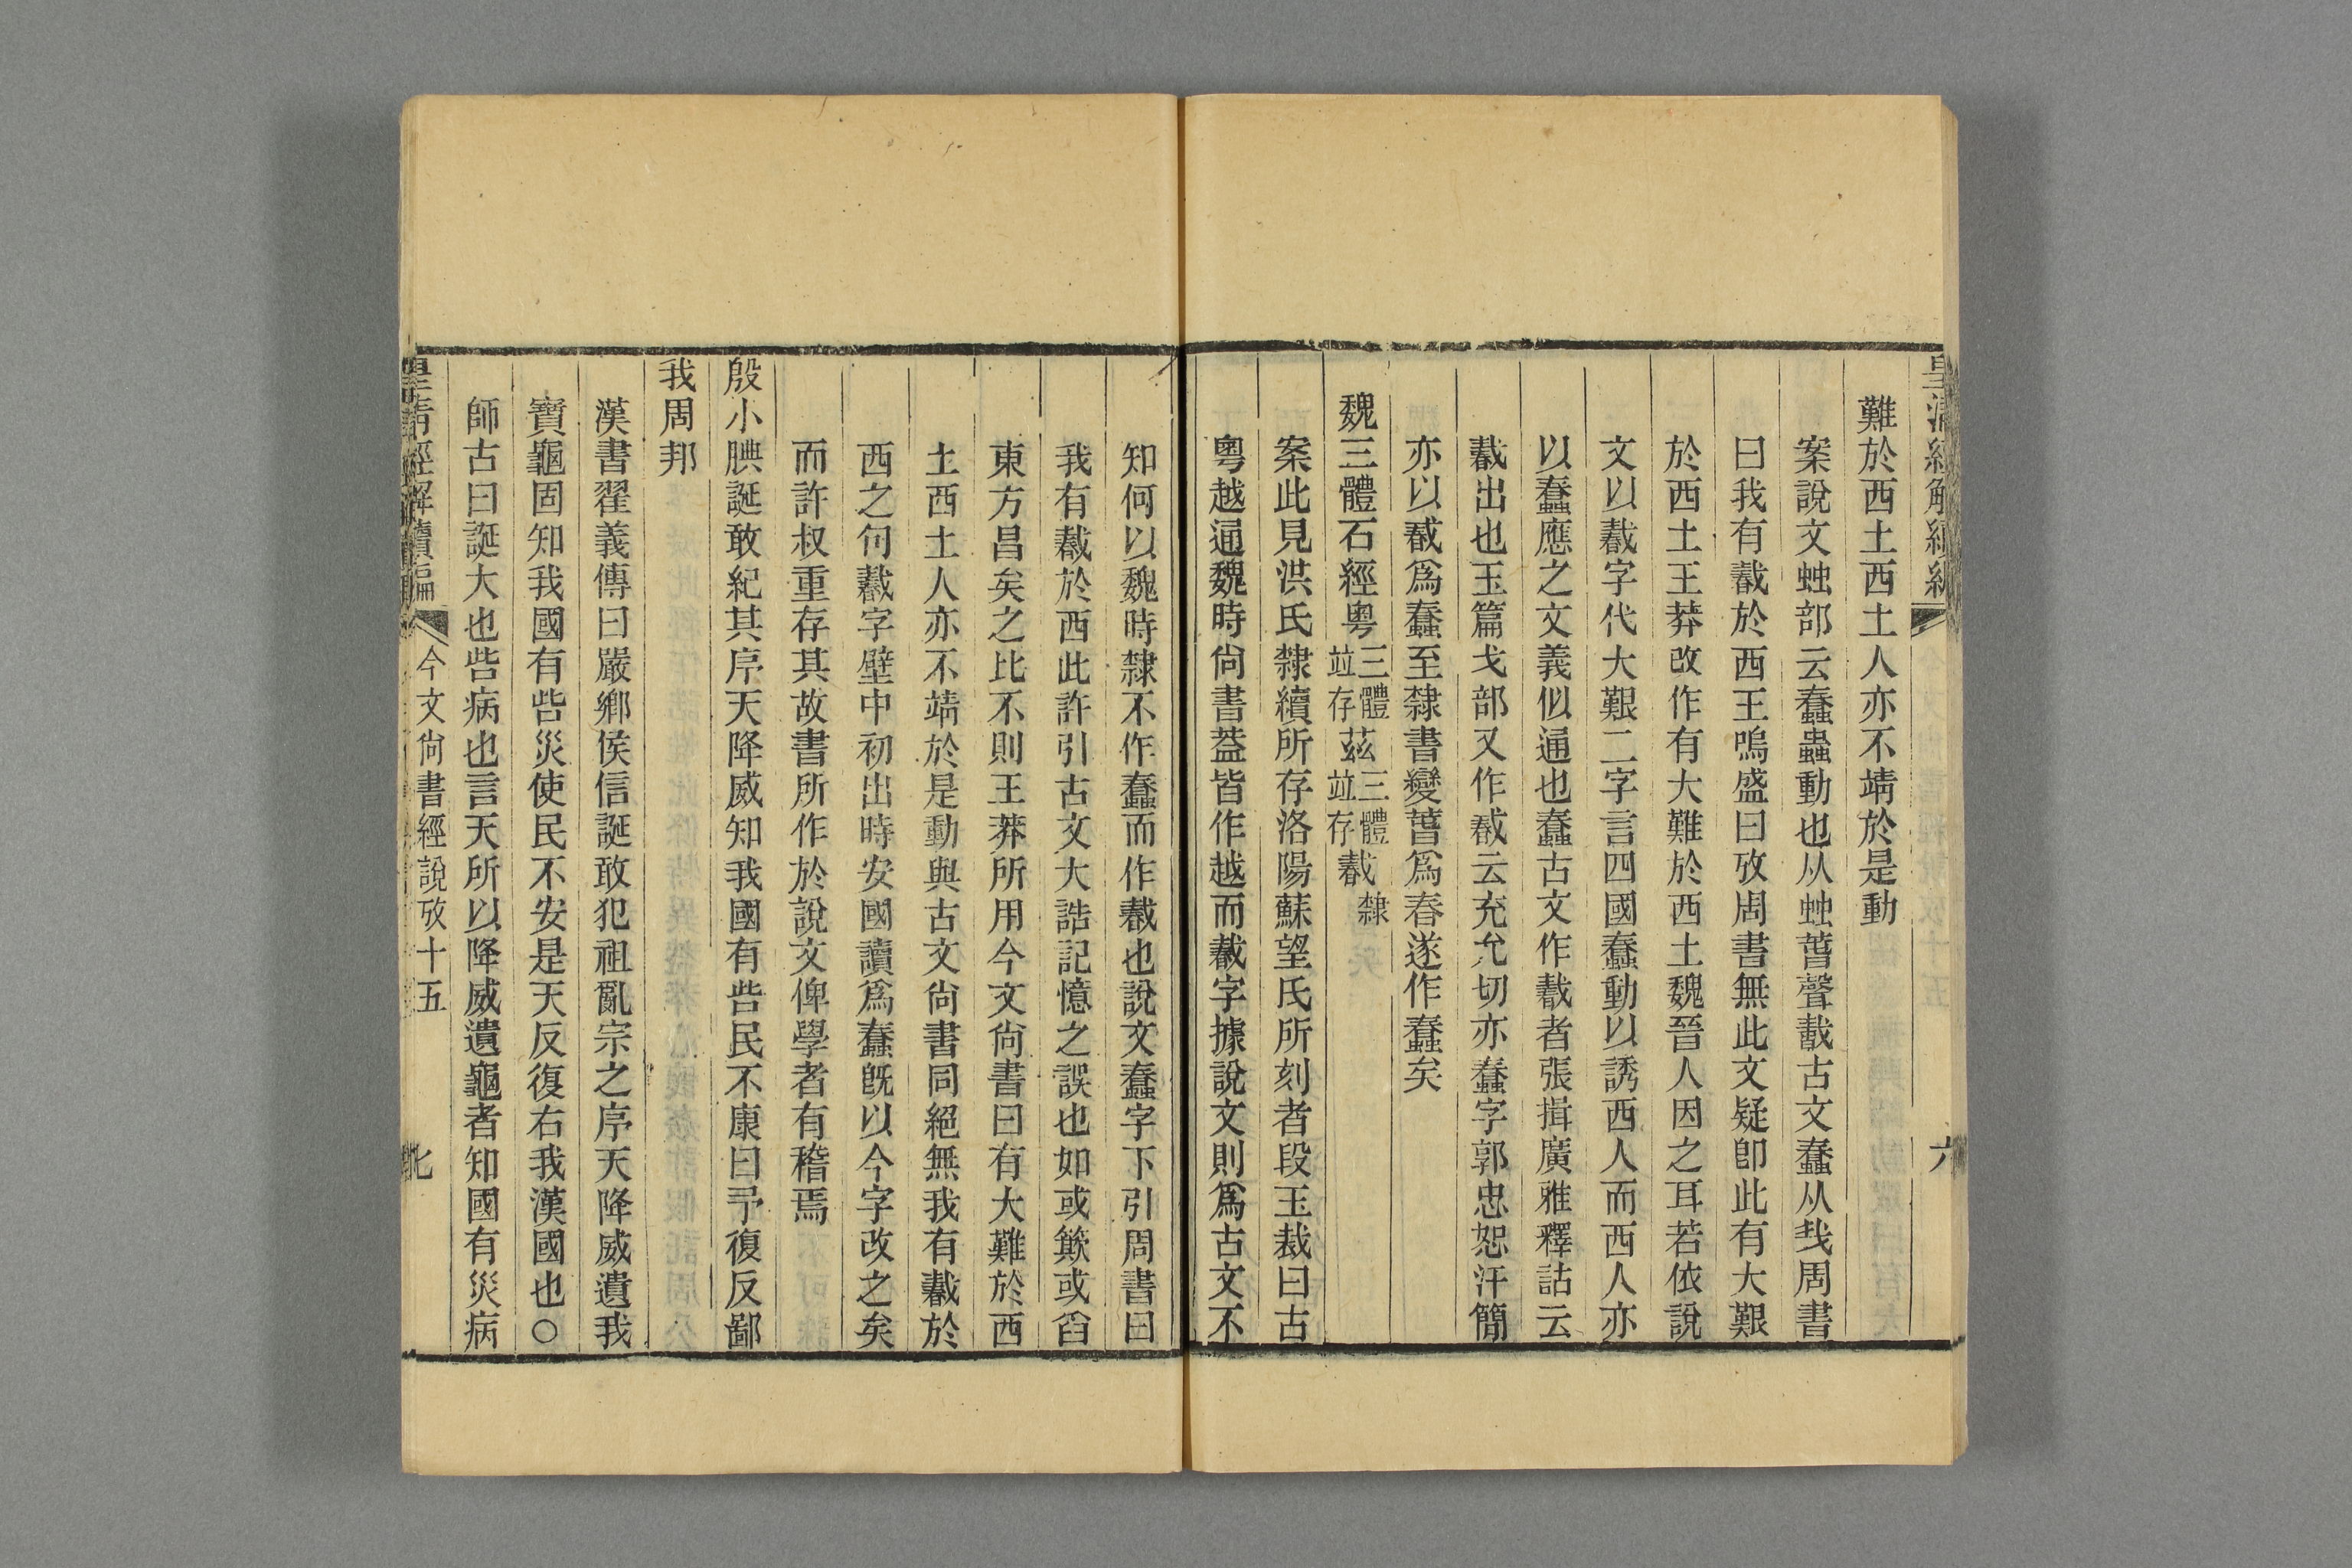 難於西土西土人亦不靖於是動
案說文䖵部云蠢蟲動也从䖵萅聲𢧵古文蠢从𢦏周書
曰我有𢧵於西王嗚盛曰攷周書無此文疑卽此有大艱
於西土王莽改作有大難於西土魏晉人因之耳若依說
文以𢧵字代大艱二字言四國蠢動以誘西人而西人亦
以蠢應之文義似通也蠢古文作𢧵者張揖廣雅釋詁云
𢧵出也玉篇戈部又作𢧵云充允切亦蠢字郭忠恕汗簡
亦以𢧵爲蠢至隸書變萅爲春遂作蠢矣
魏三體石經粵三體竝存茲三體竝存𢧵隸
案此見洪氏隸續所存洛陽蘇望氏所刻者段玉裁曰古
粵越通魏時尙書葢皆作越而𢧵字據說文則爲古文不
知何以魏時隸不作蠢而作𢧵也說文蠢字下引周書曰
我有𢧵於西此許引古文大誥記憶之誤也如或簸或舀
東方昌矣之比不則王莽所用今文尙書曰有大難於西
土西土人亦不靖於是動與古文尙書同絕無我有𢧵於
西之句𢧵字壁中初出時安國讀爲蠢旣以今字改之矣
而許叔重存其故書所作於說文俾學者有稽焉
殷小腆誕敢紀其序天降威知我國有呰民不康曰予復反鄙
我周邦
漢書翟義傳曰嚴鄉侯信誕敢犯祖亂宗之序天降威遺我
寶龜固知我國有呰災使民不安是天反復右我漢國也○
師古曰誕大也呰病也言天所以降威遺龜者知國有災病
皇清經解續編 今文尙書經說攷十五